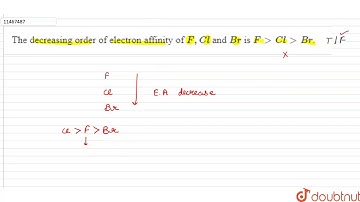 11487487
The decreasing order of electron affinity of F, Cl and Br is F > Cl > Br. T/F
F
Cl
Br
E.A decrease
Cl > F > Br
doubtnut